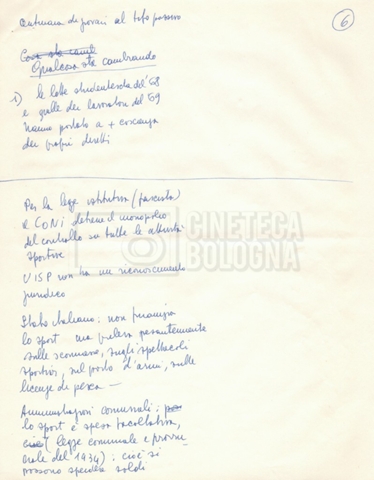 centinaia di giovani al tifo passivo
6
Cosa sta camb
Qualcosa sta cambiando
1) le lotte studentesche del '68
e quelle dei lavoratori del '69
hanno portato a + coscienza
dei propri diritti
Per la legge istitutiva (fascista)
il CONI detiene il monopolio
del controllo su tutte le attività
sportive
UISP non ha un riconoscimento
giuridico
Stato italiano: non finanzia
lo sport ma preleva pesantemente
sulle scommesse, sugli spettacoli
sportivi, sul porto d'armi, sulle
licenze di pesca —
Amministrazioni comunali:
lo sport è spesa facoltativa,
cioè (legge comunale e provin
ciale del 1934); cioè si
possono spendere soldi
CINETECA
BOLOGNA